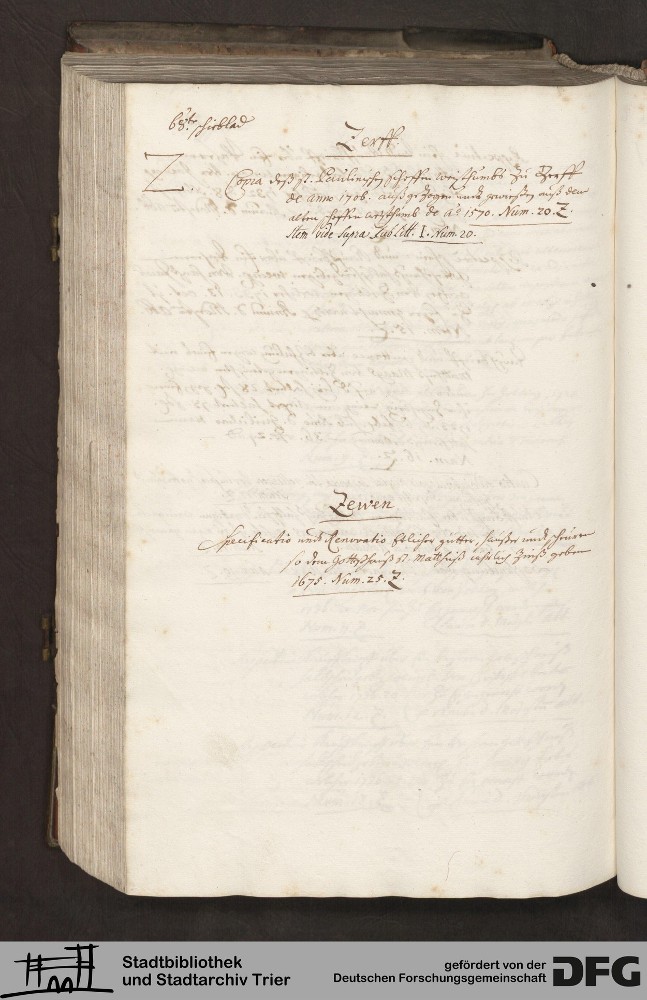 68.te schieblad
Zerff.
Z.
Copia deß St. Paulinischen scheffen weißthumbs zu Zerff
de anno 1706. außgezogen und gewiesen auß dem
alten scheffen weißthumb de ao. 1570. Num. 20. Z.
Item vide supra sub litt. I. Num. 20.
Zewen
Specificatio undt Renovatio etlicher gütter, häußer undt scheuren
so dem Gottshauß St. Matthiaß jahrlich Zinß geben
1675. Num. 25. Z.
Stadtbibliothek
und Stadtarchiv Trier
gefördert von der
Deutschen Forschungsgemeinschaft
DFG